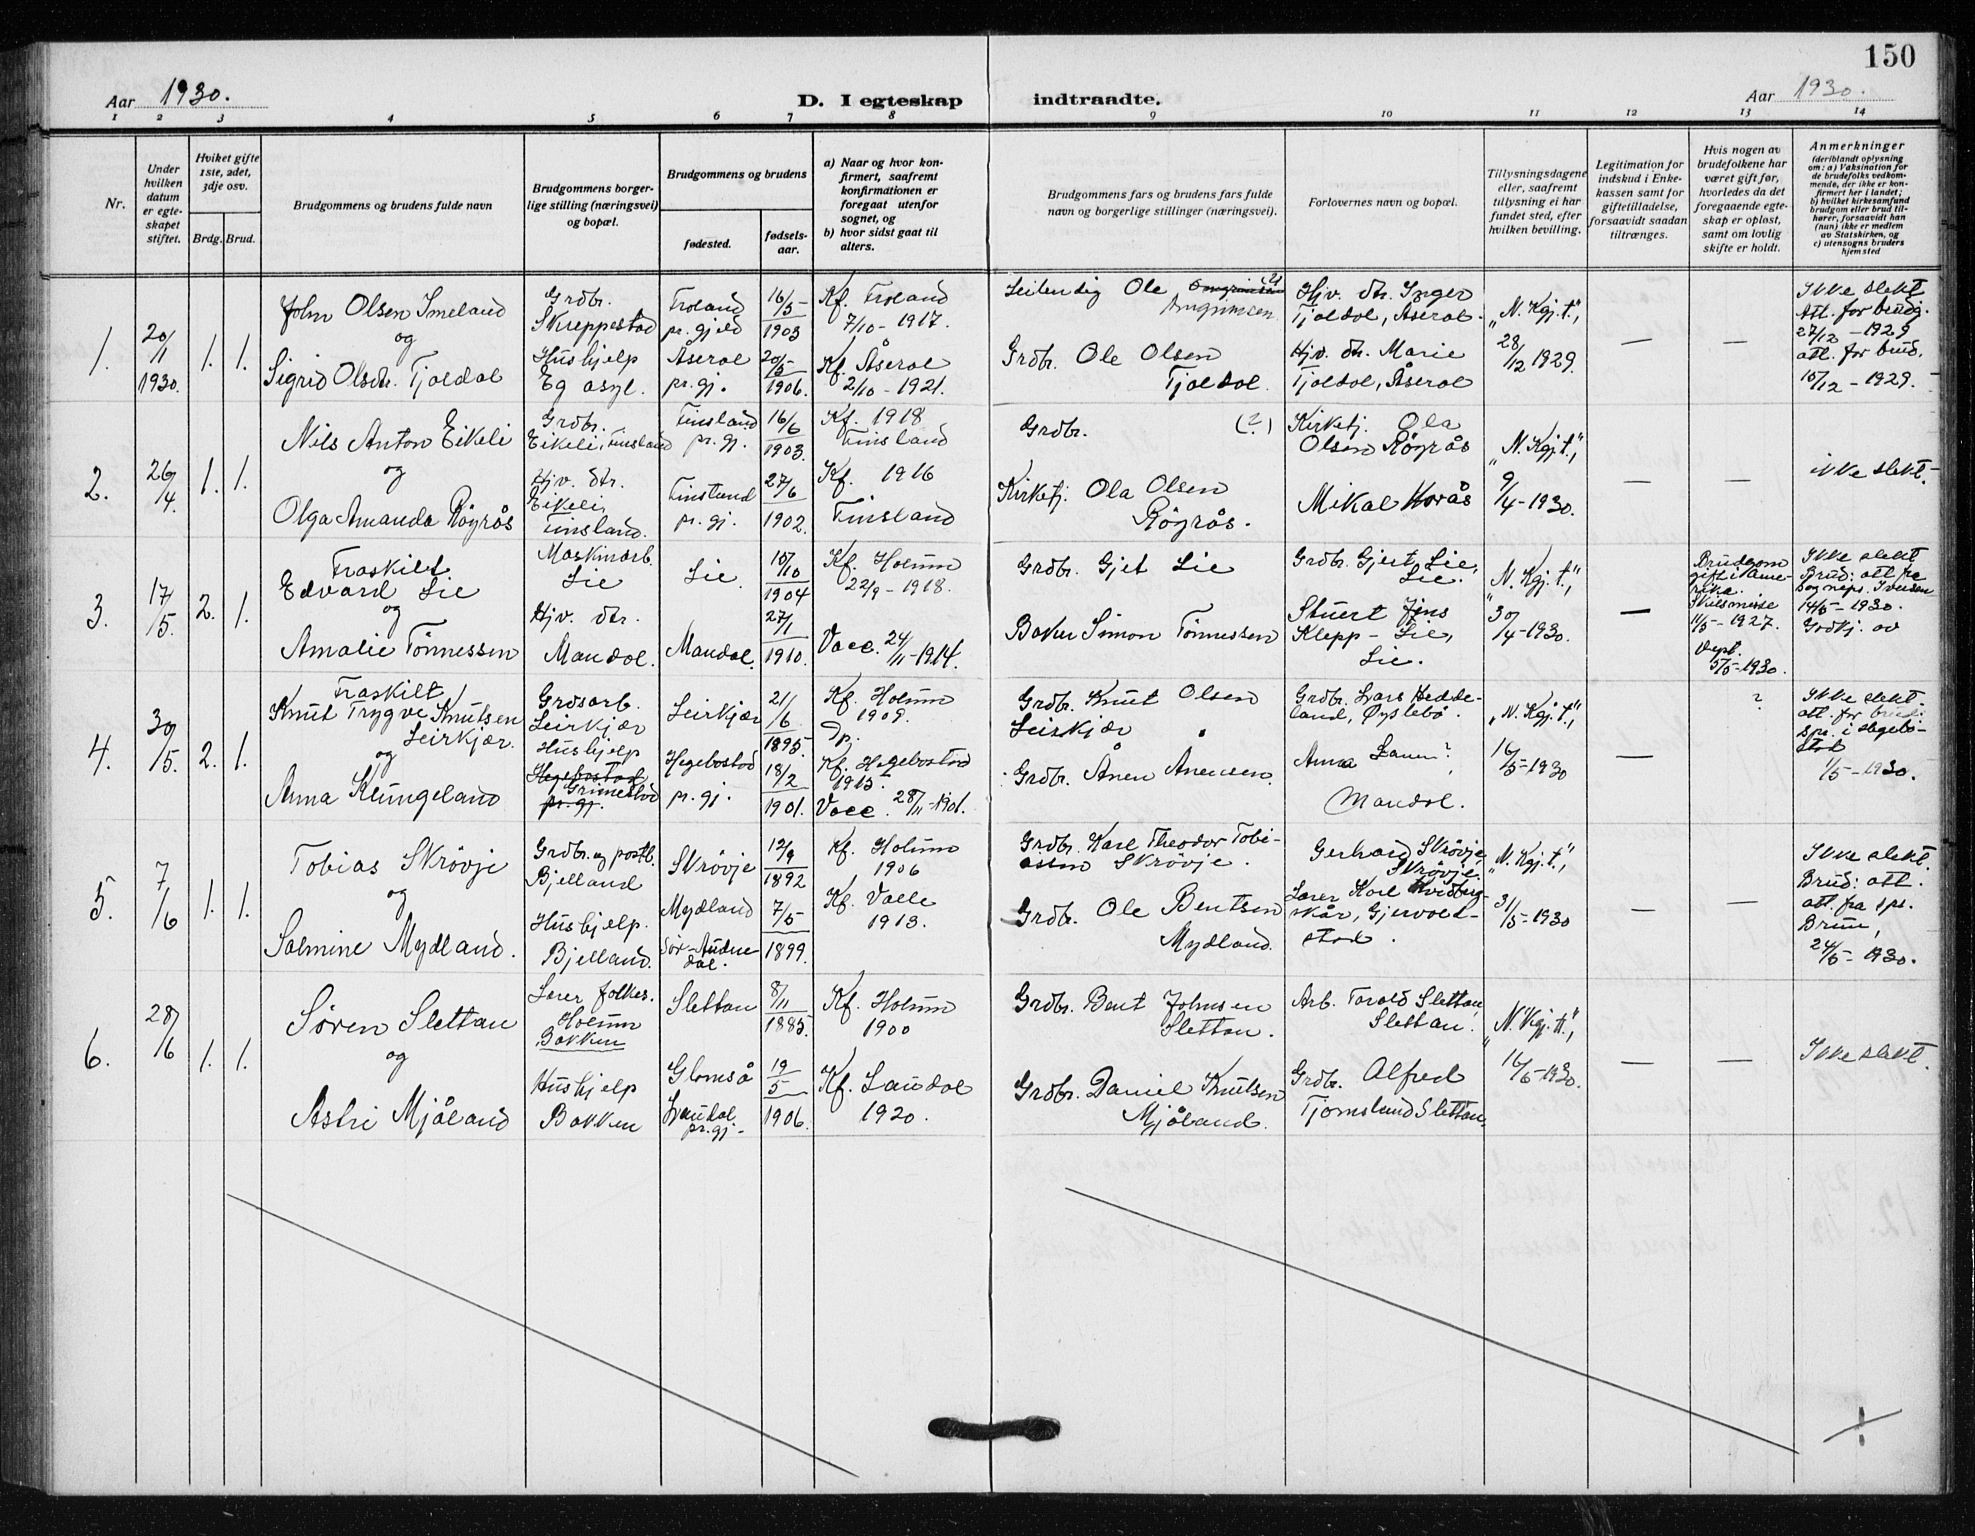 150
Aar 1930.
D. I egteskap indtraadte.
Aar 1930.
1 2 3 4 5 6 7 8 9 10 11 12 13 14
Nr.
Under hvilken datum er egteskapet stiftet.
Hviket gifte 1ste, 2det, 3dje osv.
Brdg. Brud.
Brudgommens og brudens fulde navn
Brudgommens borgerlige stilling (næringsvei) og bopæl.
Brudgommens og brudens
fødested.
fødselsaar.
a) Naar og hvor konfirmert, saafremt konfirmationen er foregaat utenfor sognet, og
b) hvor sidst gaat til alters.
Brudgommens fars og brudens fars fulde navn og borgerlige stillinger (næringsvei).
Forlovernes navn og bopæl.
Tillysningsdagene eller, saafremt tillysning ei har fundet sted, efter hvilken bevilling.
Legitimation for indskud i Enkekassen samt for giftetilladelse, forsaavidt saadan tiltrænges.
Hvis nogen av brudefolkene har været gift før, hvorledes da det foregaaende egteskap er opløst, samt om lovlig skifte er holdt.
Anmerkninger
(deriblandt oplysning om: a) Vaksination for de brudefolks vedkommende, der ikke er konfirmert her i landet; b) hvilket kirkesamfund brudgom eller brud tilhører, forsaavidt han (hun) ikke er medlem av Statskirken, og c) utensogns bruders hjemsted
1.
20/1 1930.
1. 1.
John Olsen Imeland
og
Sigrid Olsdtr. Tjoldal
Grdbr.
Skreppestad
Hushjelp
Eg asyl.
Froland
pr. gjeld
Åseral
pr. gj.
16/5 1903
20/5 1906.
Kf. Froland
7/10 - 1917.
Kf. Åseral
2/10 - 1921.
Ole
Grdbr. Ole Olsen
Tjoldal.
Hjv. dtr. Inger
Tjoldal, Åseral.
Hjv. dtr. Marie
Tjoldal, Åseral
"N. Kgj. t.",
28/12 1929.
—
—
Ikke slekt
Att. for brudg.
27/12 - 1929
att. for brud.
10/12 - 1929.
2.
26/4.
1. 1.
Nils Anton Eikeli
og
Olga Amanda Røyrås
Grdbr.
Eikeli, Finsland
Hjv. dtr.
Eikeli,
Finsland.
Finsland
pr. gj.
Finsland
pr. gj.
16/6 1903.
27/6 1902.
Kf. 1918
Finsland
Kf. 1916
Finsland
Grdbr. (?)
Kirketj. Ola Olsen
Røyrås.
Kirketj. Ola
Olsen Røyrås
Mikal Korås
"N. Kgj. t.",
9/4 - 1930.
—
—
ikke slekt.
3.
17/5.
2. 1.
Fraskilt
Edvard Lie
og
Amalie Tønnessen
Maskinarb.
Lie
Hjv. dtr.
Mandal.
Lie.
Mandal.
10/10 1904
27/1 1910.
Kf. Holum
22/9 - 1918.
Vacc. 24/11 - 1914.
Grdbr. Gjert Lie
Baker Simon Tønnessen
Grdbr. Gjert Lie,
Lie.
Stuert Jens
Klepp - Lie,
Lie.
"N. Kgj. t.",
30/4 - 1930.
—
Brudgom
gift i Amerika.
Skilsmisse
11/5 - 1927.
Dept.
5/5 - 1930.
Ikke slekt
Brud: att fra
sogneps. Iversen
14/5 - 1930.
Godkj. av
4.
30/5.
2. 1.
Fraskilt
Knut Trygve Knutsen
Leirkjær.
og
Anna Klungeland
Grdsarb.
Leirkjær
Hushjelp
Hegebostad
Grimestad
pr. gj.
Leirkjær
Hegebostad
pr. gj.
21/6 1895
18/2 1901.
Kf. Holum
1909.
Dp.
Kf. Hegebostad
1915.
Vacc. 28/11 - 1901.
Grdbr. Knut Olsen
Leirkjær
Grdbr. Ånen Ånensen
Grdbr. Lars Heddeland, Øyslebø.
Anna ?
Mandal.
"N. Kgj. t.",
16/5 - 1930
—
?
Ikke slekt.
att. for brud:
spr. i Hegebostad
1/5 - 1930.
5.
7/6
1. 1.
Tobias Skrøvje
og
Salmine Mydland.
Grdbr. og postb.
Bjelland
Hushjelp.
Bjelland.
Skrøvje
Mydland
Sør-Audnedal.
12/9 1892
7/5 1899.
Kf. Holum
1906
Kf. Valle
1913.
Grdbr. Karl Theodor Tobiassen Skrøvje.
Grdbr. Ole Bentsen
Mydland.
Gerhard Skrøvje,
Skrøvje.
Lærer Karl Hvidbergskår, Gjervoldstad.
"N. Kgj. t.",
31/5 - 1930
—
—
Ikke slekt.
Brud: att.
att. fra spr.
Bruun,
24/5 - 1930.
6.
28/6
1. 1.
Søren Slettan
og
Astri Mjåland
Lærer folkes.
Holum
Bakken
Hushjelp
Bakken
Slettan
Glomså
Laudal
pr. gj.
8/11 1885
19/5 1906.
Kf. Holum
1900
Kf. Laudal
1920.
Grdbr. Bent Johnsen
Slettan.
Grdbr. Daniel Knutsen
Mjåland.
Arb. Torald Slettan,
Slettan.
Grdbr. Alfred
Tjomsland Slettan.
"N. Kgj. t.",
16/6 - 1930.
—
—
Ikke slekt.